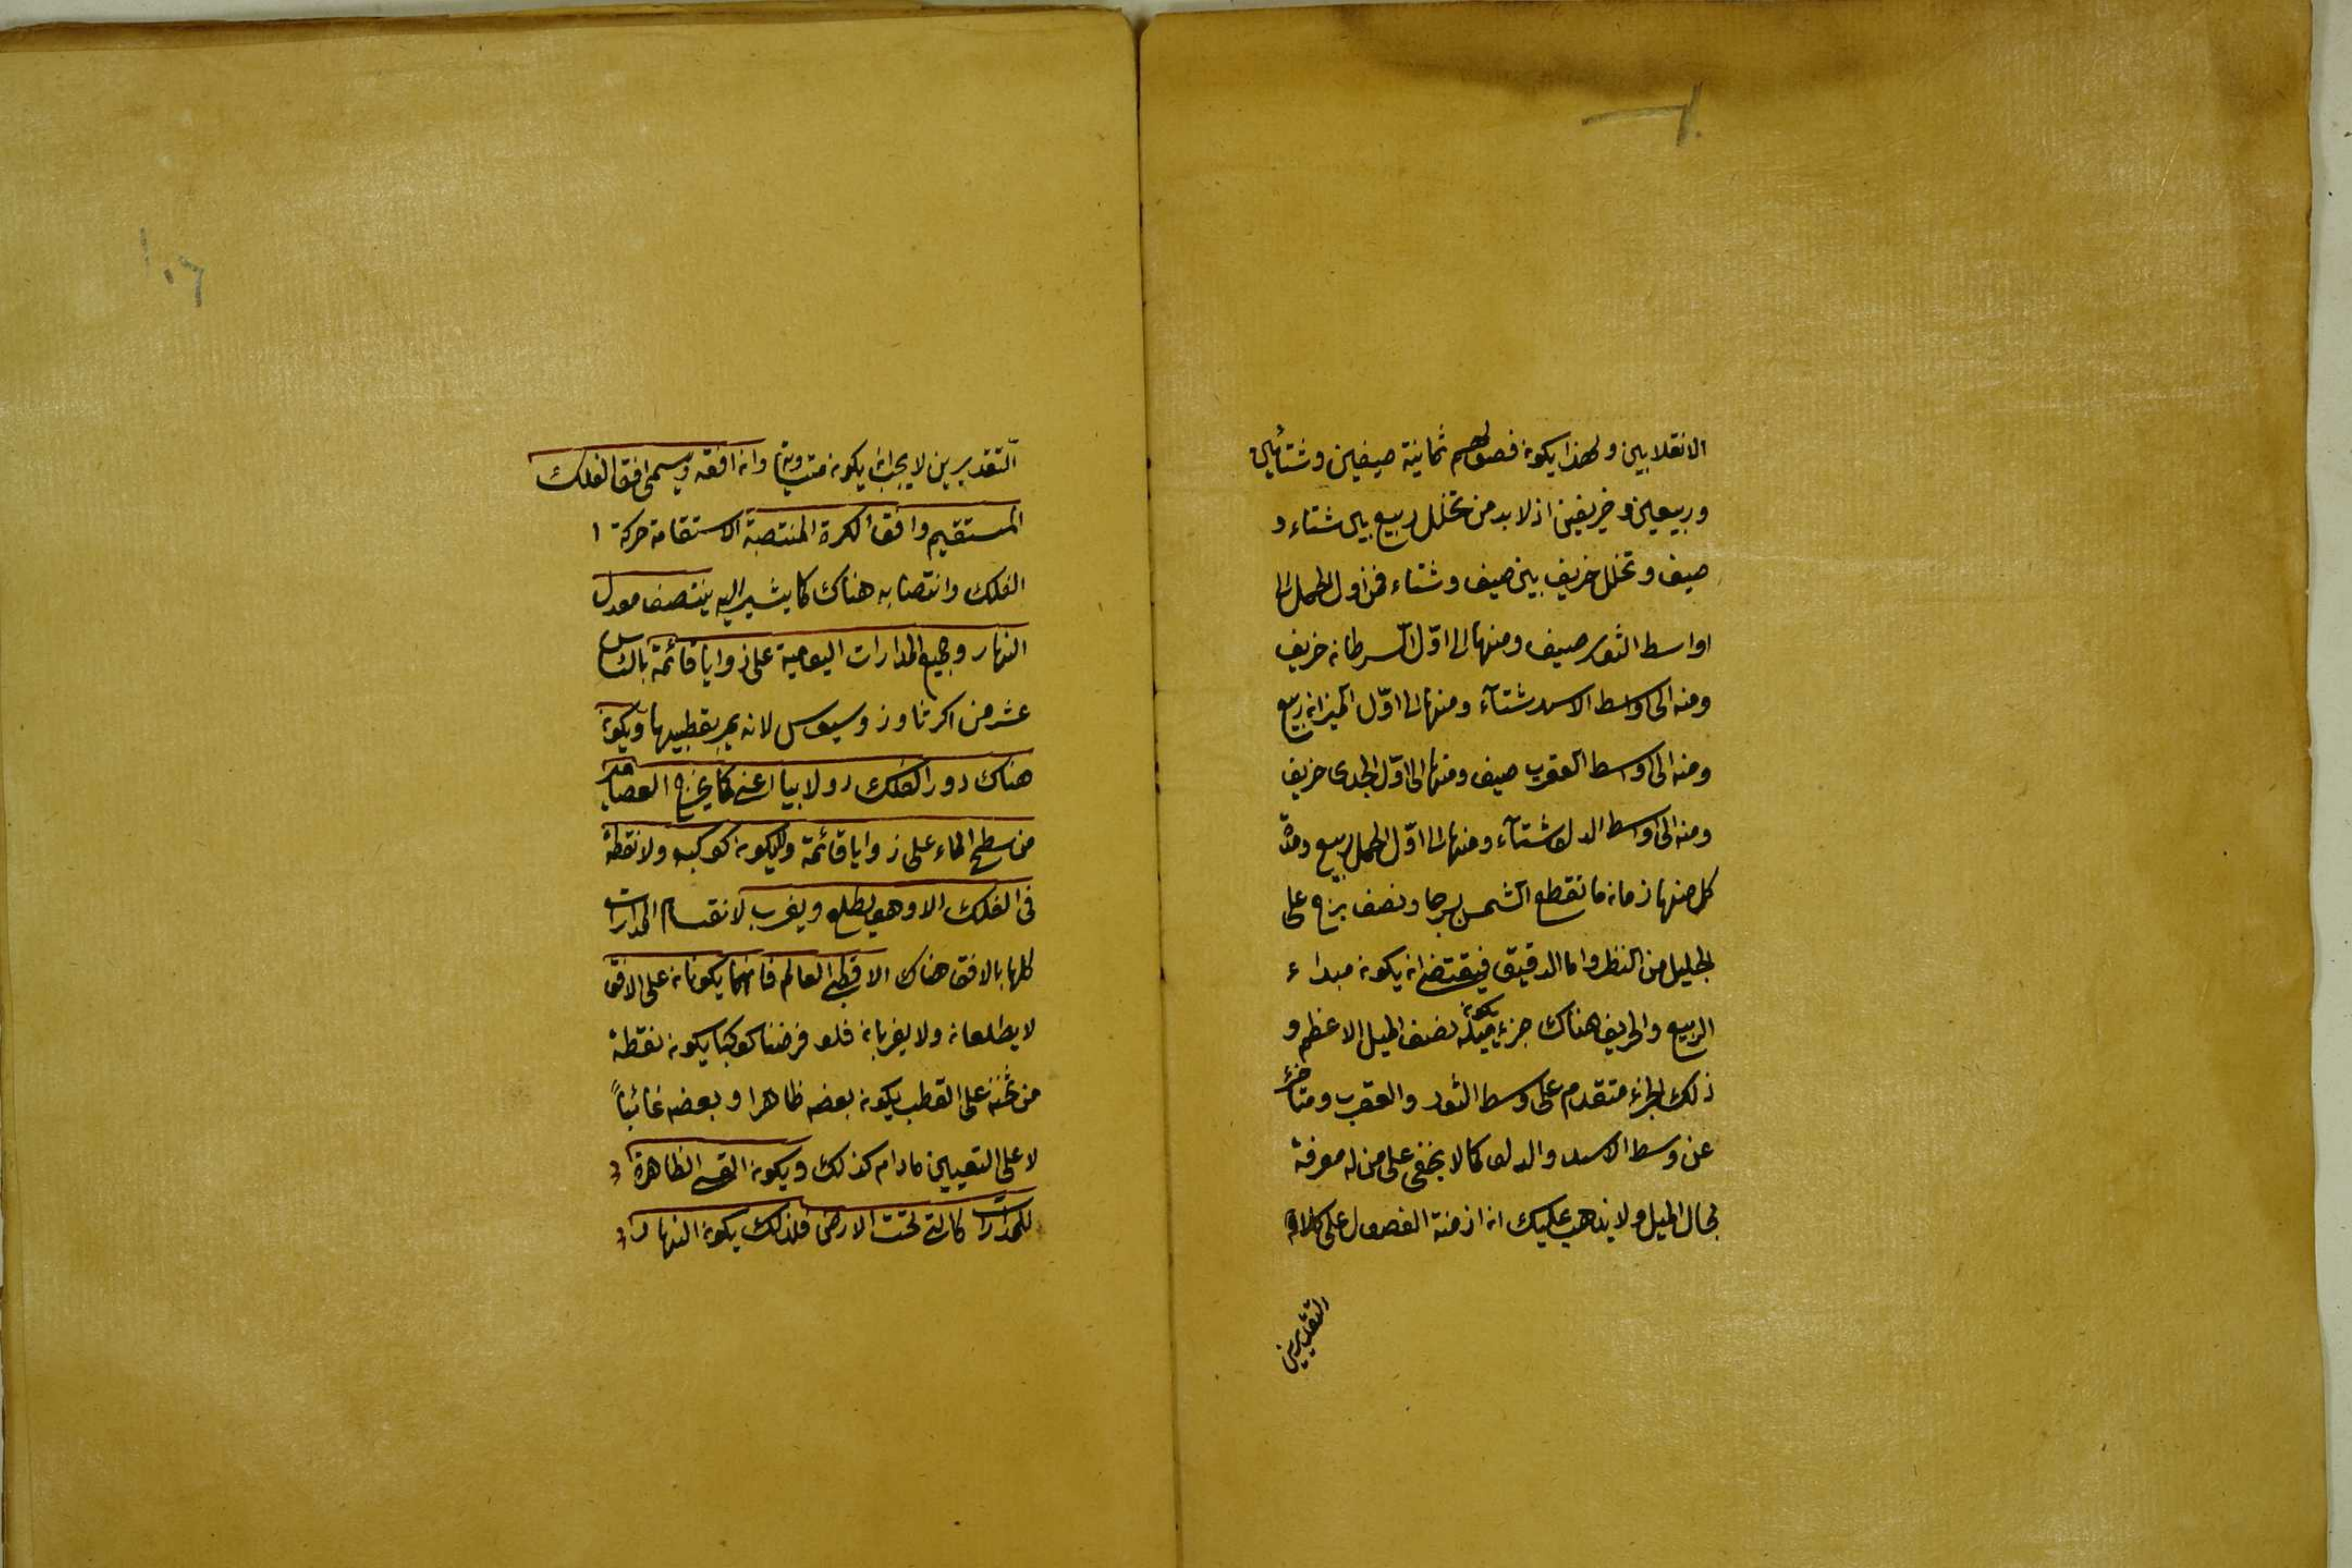 الانقلابين ولهذا يكون فصولهم ثمانية صيفين وشتائين
وربيعين وخريفين اذ لا بد من تخلل ربيع بين شتاء و
صيف وتخلل خريف بين صيف وشتاء فمن اول الحمل الى
اواسط الثور صيف ومنها الى اوّل السرطان خريف
ومنه الى اواسط الاسد شتآء ومنها الى اوّل الميزان ربيع
ومنه الى اواسط العقرب صيف ومنها الى اوّل الجدى خريف
ومنه الى اواسط الدلو شتآء ومنها الى اوّل الحمل ربيع ومدة
كل منها زمان ما تقطع الشمس برجا ونصف برج على
الجليل من النظر واما الدقيق فيقتضى ان يكون مبداء
الربيع والخريف هناك جزء يكون ميله نصف الميل الاعظم و
ذلك الجزء متقدم على وسط الثور والعقرب ومتأخر
عن وسط الاسد والدلو كما لا يخفى على من له معرفة
بحال الميل ولا يذهب عليك ان ازمنة الفصول على كلا
التقديرين
التقديرين لا يجب ان يكون متساوية وان افقه ويسمى افق الفلك
المستقيم وافق الكرة المنتصبة الاستقامة حركة
الفلك وانتصابه هناك كما يشير اليه ينتصف معدل
النهار وجميع المدارات اليومية على زوايا قائمة بالسادس
عشر من اكر ثاوذوسيوس لانه يمر بقطبيها ويكون
هناك دور الفلك دولابيا اعنى كما يخرج العصامير
من سطح الماء على زوايا قائمة ولا يكون كوكب ولا نقطة
فى الفلك الا وهو يطلع ويغرب لانقسام المدارات
كلها بالافق هناك الا قطبى العالم فانهما يكونان على الافق
لا يطلعان ولا يغربان فلو فرضنا كوكبا يكون نقطة
من ثخنه على القطب يكون بعضه ظاهرا وبعضه غائباً
لا على التعيين مادام كذلك ويكون القسى الظاهرة
للمدارات كالتى تحت الارض فلذلك يكون النهار